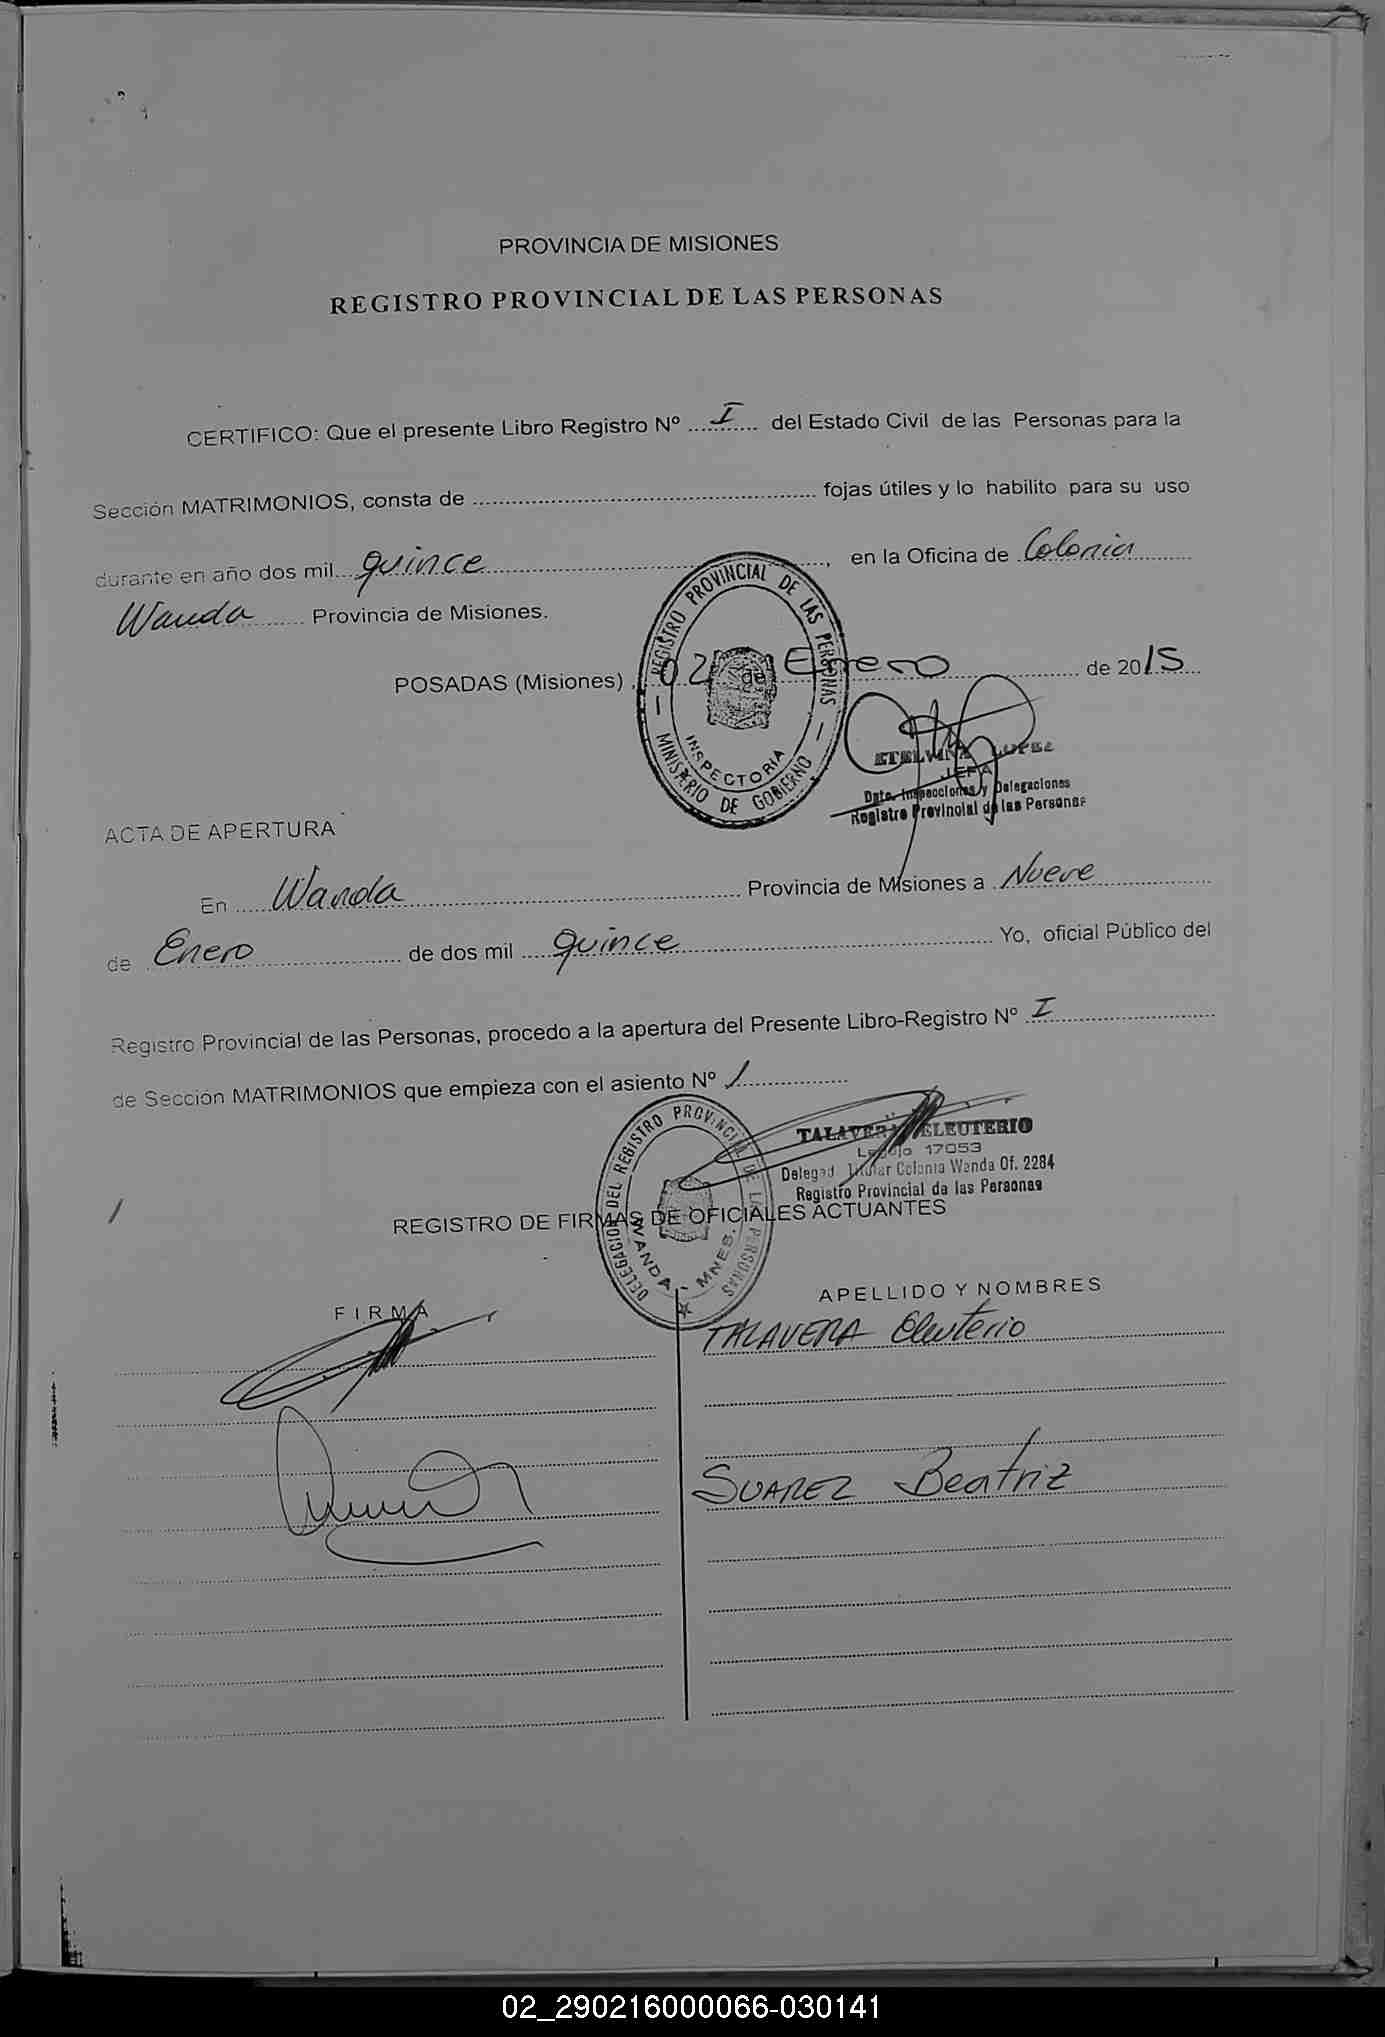 PROVINCIA DE MISIONES
REGISTRO PROVINCIAL DE LAS PERSONAS
CERTIFICO: Que el presente Libro Registro Nº I del Estado Civil de las Personas para la
Sección MATRIMONIOS, consta de ........ fojas útiles y lo habilito para su uso
durante en año dos mil quince, en la Oficina de Colonia
Wanda Provincia de Misiones.
POSADAS (Misiones) 02 de Enero de 2015
REGISTRO PROVINCIAL DE LAS PERSONAS
INSPECTORIA
MINISTERIO DE GOBIERNO
ETELVINA LOPEZ
JEFA
Dpto. Inspecciones y Delegaciones
Registro Provincial de las Personas
ACTA DE APERTURA
En Wanda Provincia de Misiones a Nueve
de Enero de dos mil quince Yo, oficial Público del
Registro Provincial de las Personas, procedo a la apertura del Presente Libro-Registro Nº I
de Sección MATRIMONIOS que empieza con el asiento Nº 1
DELEGACION DEL REGISTRO PROVINCIAL DE LAS PERSONAS
WANDA - MNES.
TALAVERA ELEUTERIO
Legajo 17053
Delegad Titular Colonia Wanda Of. 2284
Registro Provincial de las Personas
REGISTRO DE FIRMAS DE OFICIALES ACTUANTES
FIRMA
APELLIDO Y NOMBRES
TALAVERA Eleuterio
SUAREZ Beatriz
02_290216000066-030141